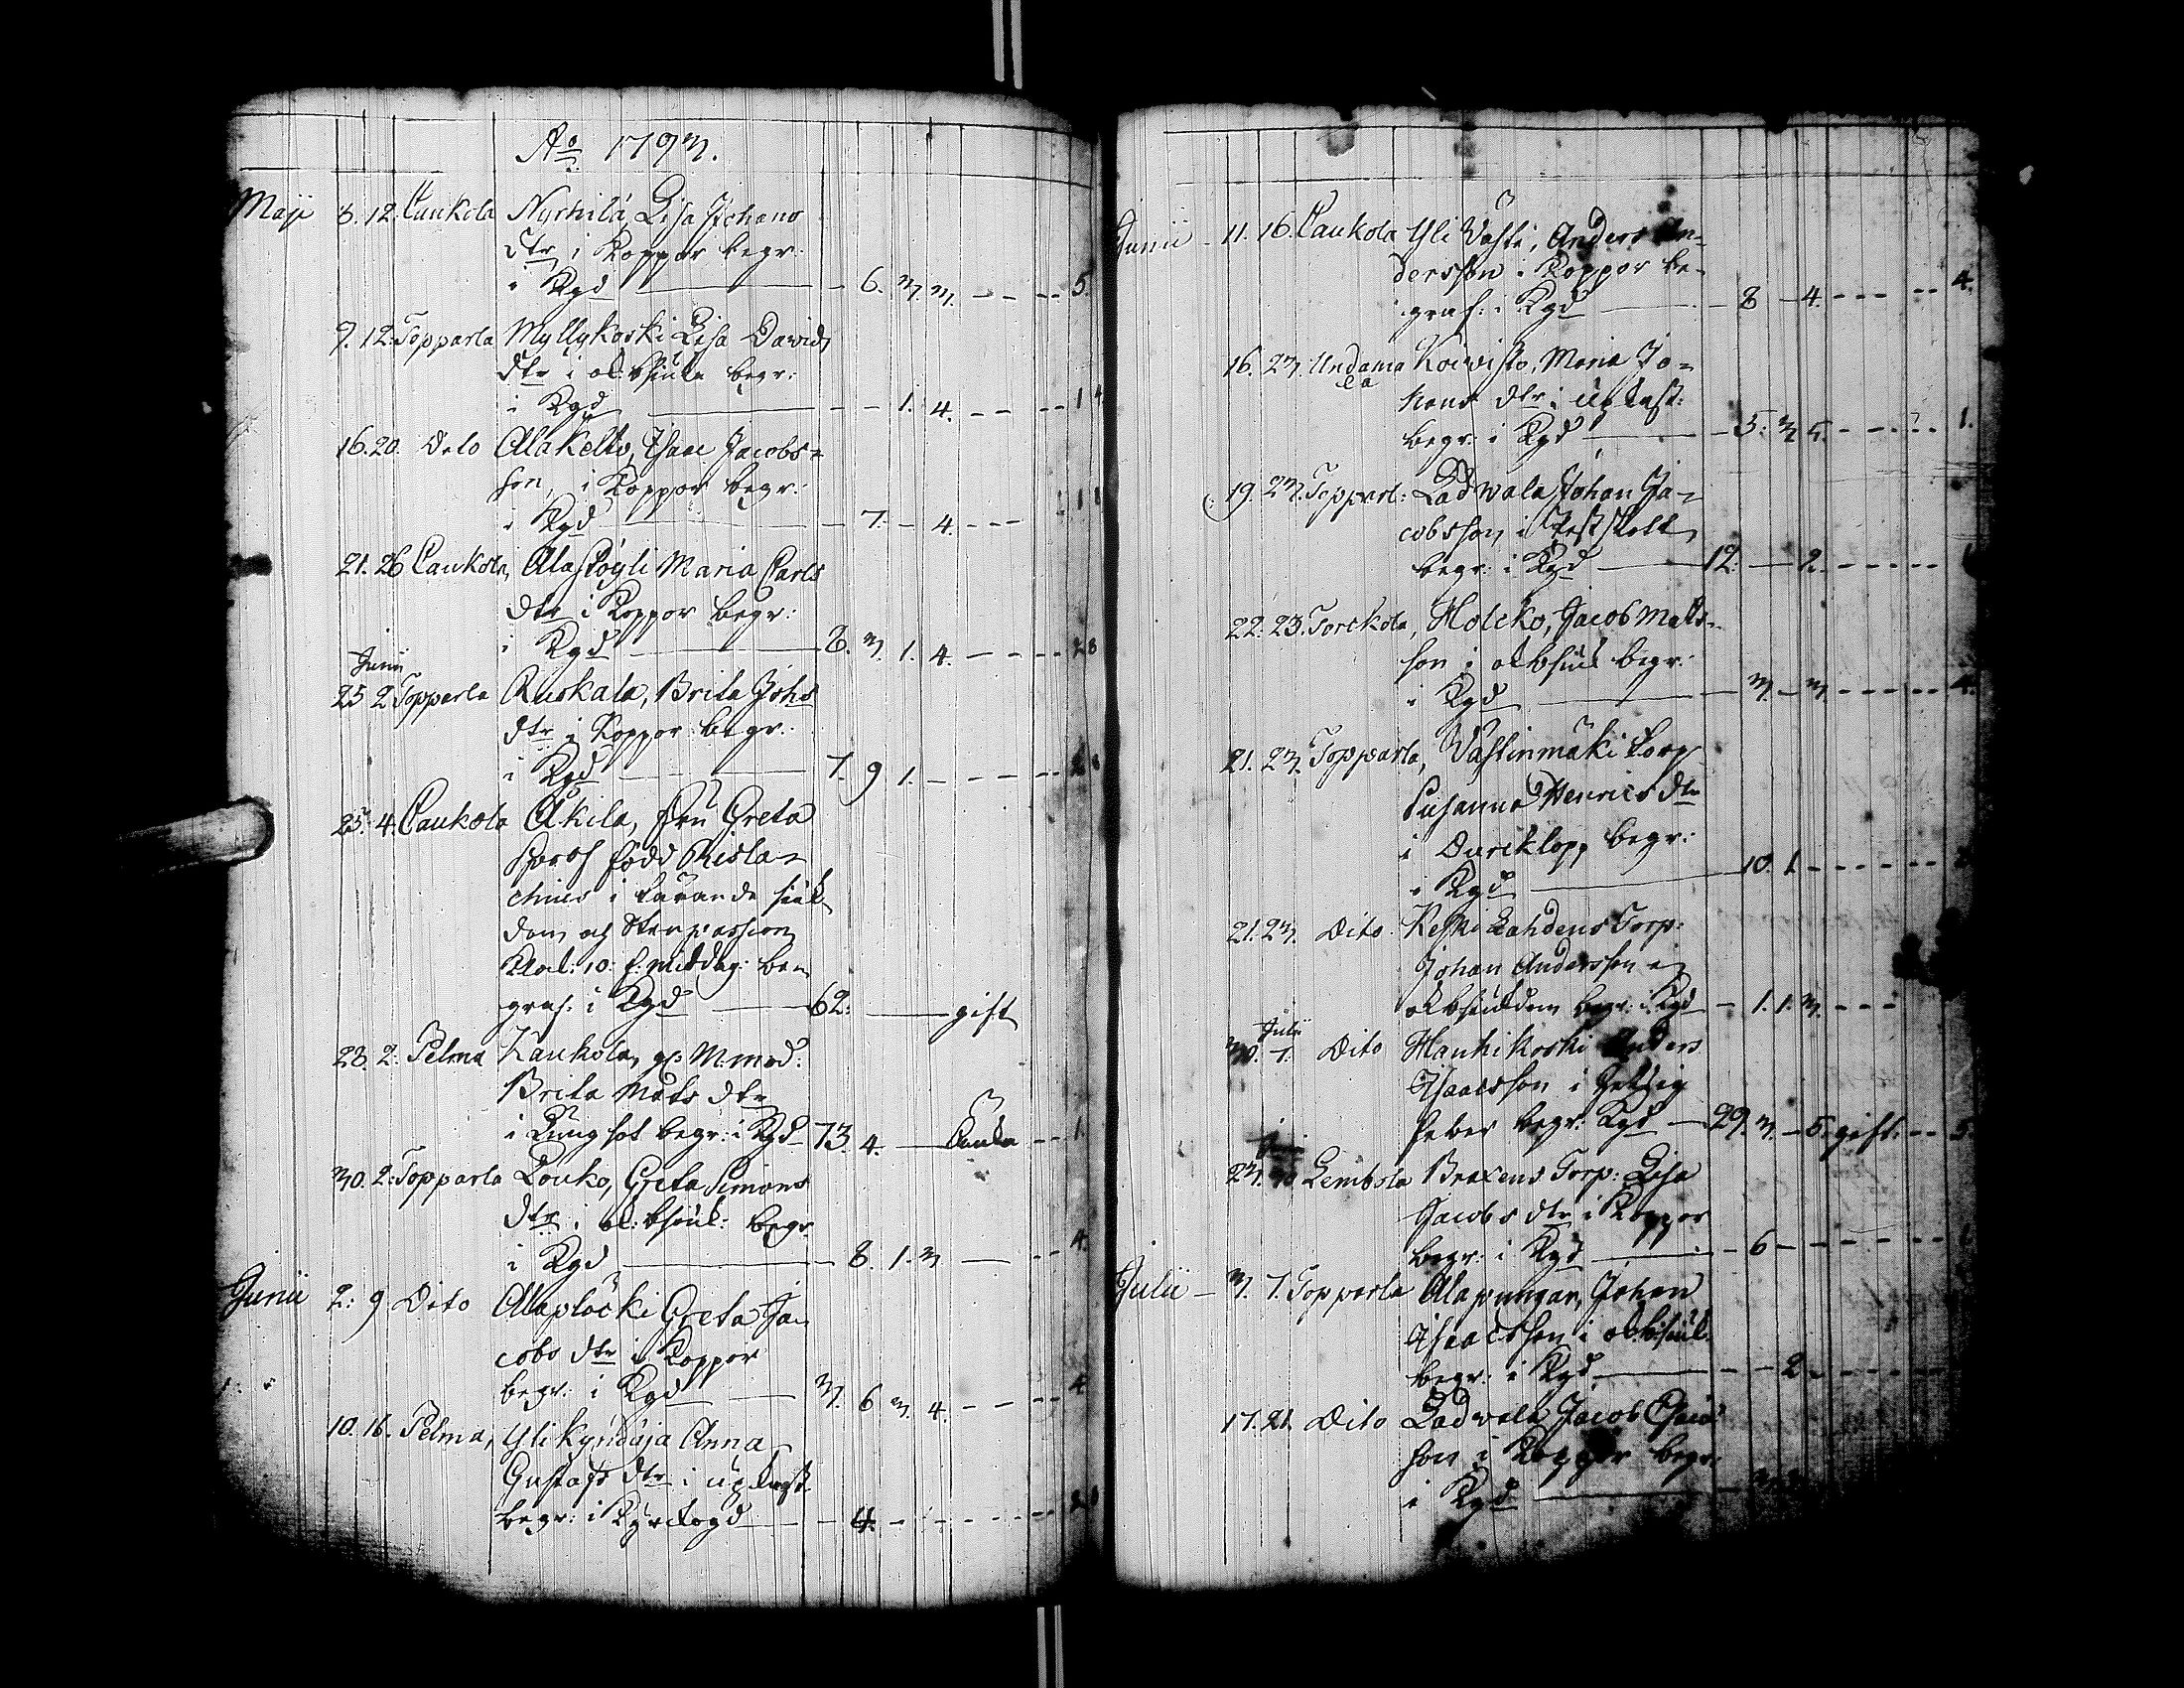 Ao 1793.
Maji 8. 12. Caukola Nyrhilä, Lisa Johans
dtr i Koppor begr:
i Kgd — 6. 3. 3. - - - 5.
9. 12. Topparla Myllykoski Lisa Davids
dtr i ok: siukd: begr:
i Kgd — - - 1. 4. - - - 1
16. 20. Dito Alakelto, Isaac Jacobs-
son, i Koppor begr:
i Kgd — 7. - 4. - - - 1
21. 26 Caukola, Alastöyli Maria Carls
dtr i Koppor begr:
i Kgd — 8. 3. 1. 4. - - - 28
Junii
25 2 Topparla Ruskala, Brita Johs
dtr i Koppor begr:
i Kgd — 7. 9 1. - - - -
25. 4. Caukola Äkilä, Fru Greta
född
i tärande siuk
dom och Stenpassion
Klock: 10 f: middag: be-
graf. i Kgd — 62: — gift
28. 2: Pelma Kaukola, gl. M:mod:
Brita Mats dtr
i Lungsot begr: i Kgd 73. 4. — Enka - - 1.
30. 2: Topparla Louko, Greta Simons
dtr i ok: siuk: begr
i Kgd — 8. 1. 3 — - - 4.
Junii 2: 9 Dito Alaplöcki Greta Ja-
cobs dtr i Koppor
begr: i Kgd — 3. 6 3. 4. - - - 4
10. 16. Pelma, Yli Kyndäjä Anna
Gustafs dtr i upkast
begr: i Kyrckogd — - 4. - - - -
Junii - 11. 16. Caukola Yli Wäste, Anders An-
dersson i Koppor be-
graf: i Kgd — - 8 - 4. - - - - - 4.
16. 23. Undama Koivisto, Maria Jo-
la
hans dtr i Upkast:
begr: i Kgd — - 5. 3. 5. - - - - 1.
19. 23. Topparl: Ladwala, Johan Ja-
cobsson, i
begr: i Kgd — 12. — 2. - - - - -
22. 23. Torckola, Holcko, Jacob Mats-
son i ok: siuk begr:
i Kgd — - 3. - 3. - - - - - 4.
21. 23. Topparla, Wästinmäki torp
Susanna Henrics dtr
i Durcklopp begr:
i Kgd — 10. 1 - - - - -
21. 23. Dito Keski Lahdens Torp:
Johan Andersson i
ok: siukdom begr: i Kgd - 1. 1. 3. - - -
Julii
30. 7. Dito Hanhikoski Anders
Isaacsson i hetsig
feber begr: Kgd — 29. 3. - 5. gift. - - 5.
Junii
23. 30 Lembola Braxens Torp: Lisa
Jacobs dtr i Koppor
begr: i Kgd — - 6 - - - - - -
Julii - 3. 7. Topparla Alapungar, Johan
Isaacsson i ok: siuk:
begr: i Kgd — - - 2 - - - - -
17. 21. Dito Ladwala Jacob
son i Koppor begr:
i Kgd —